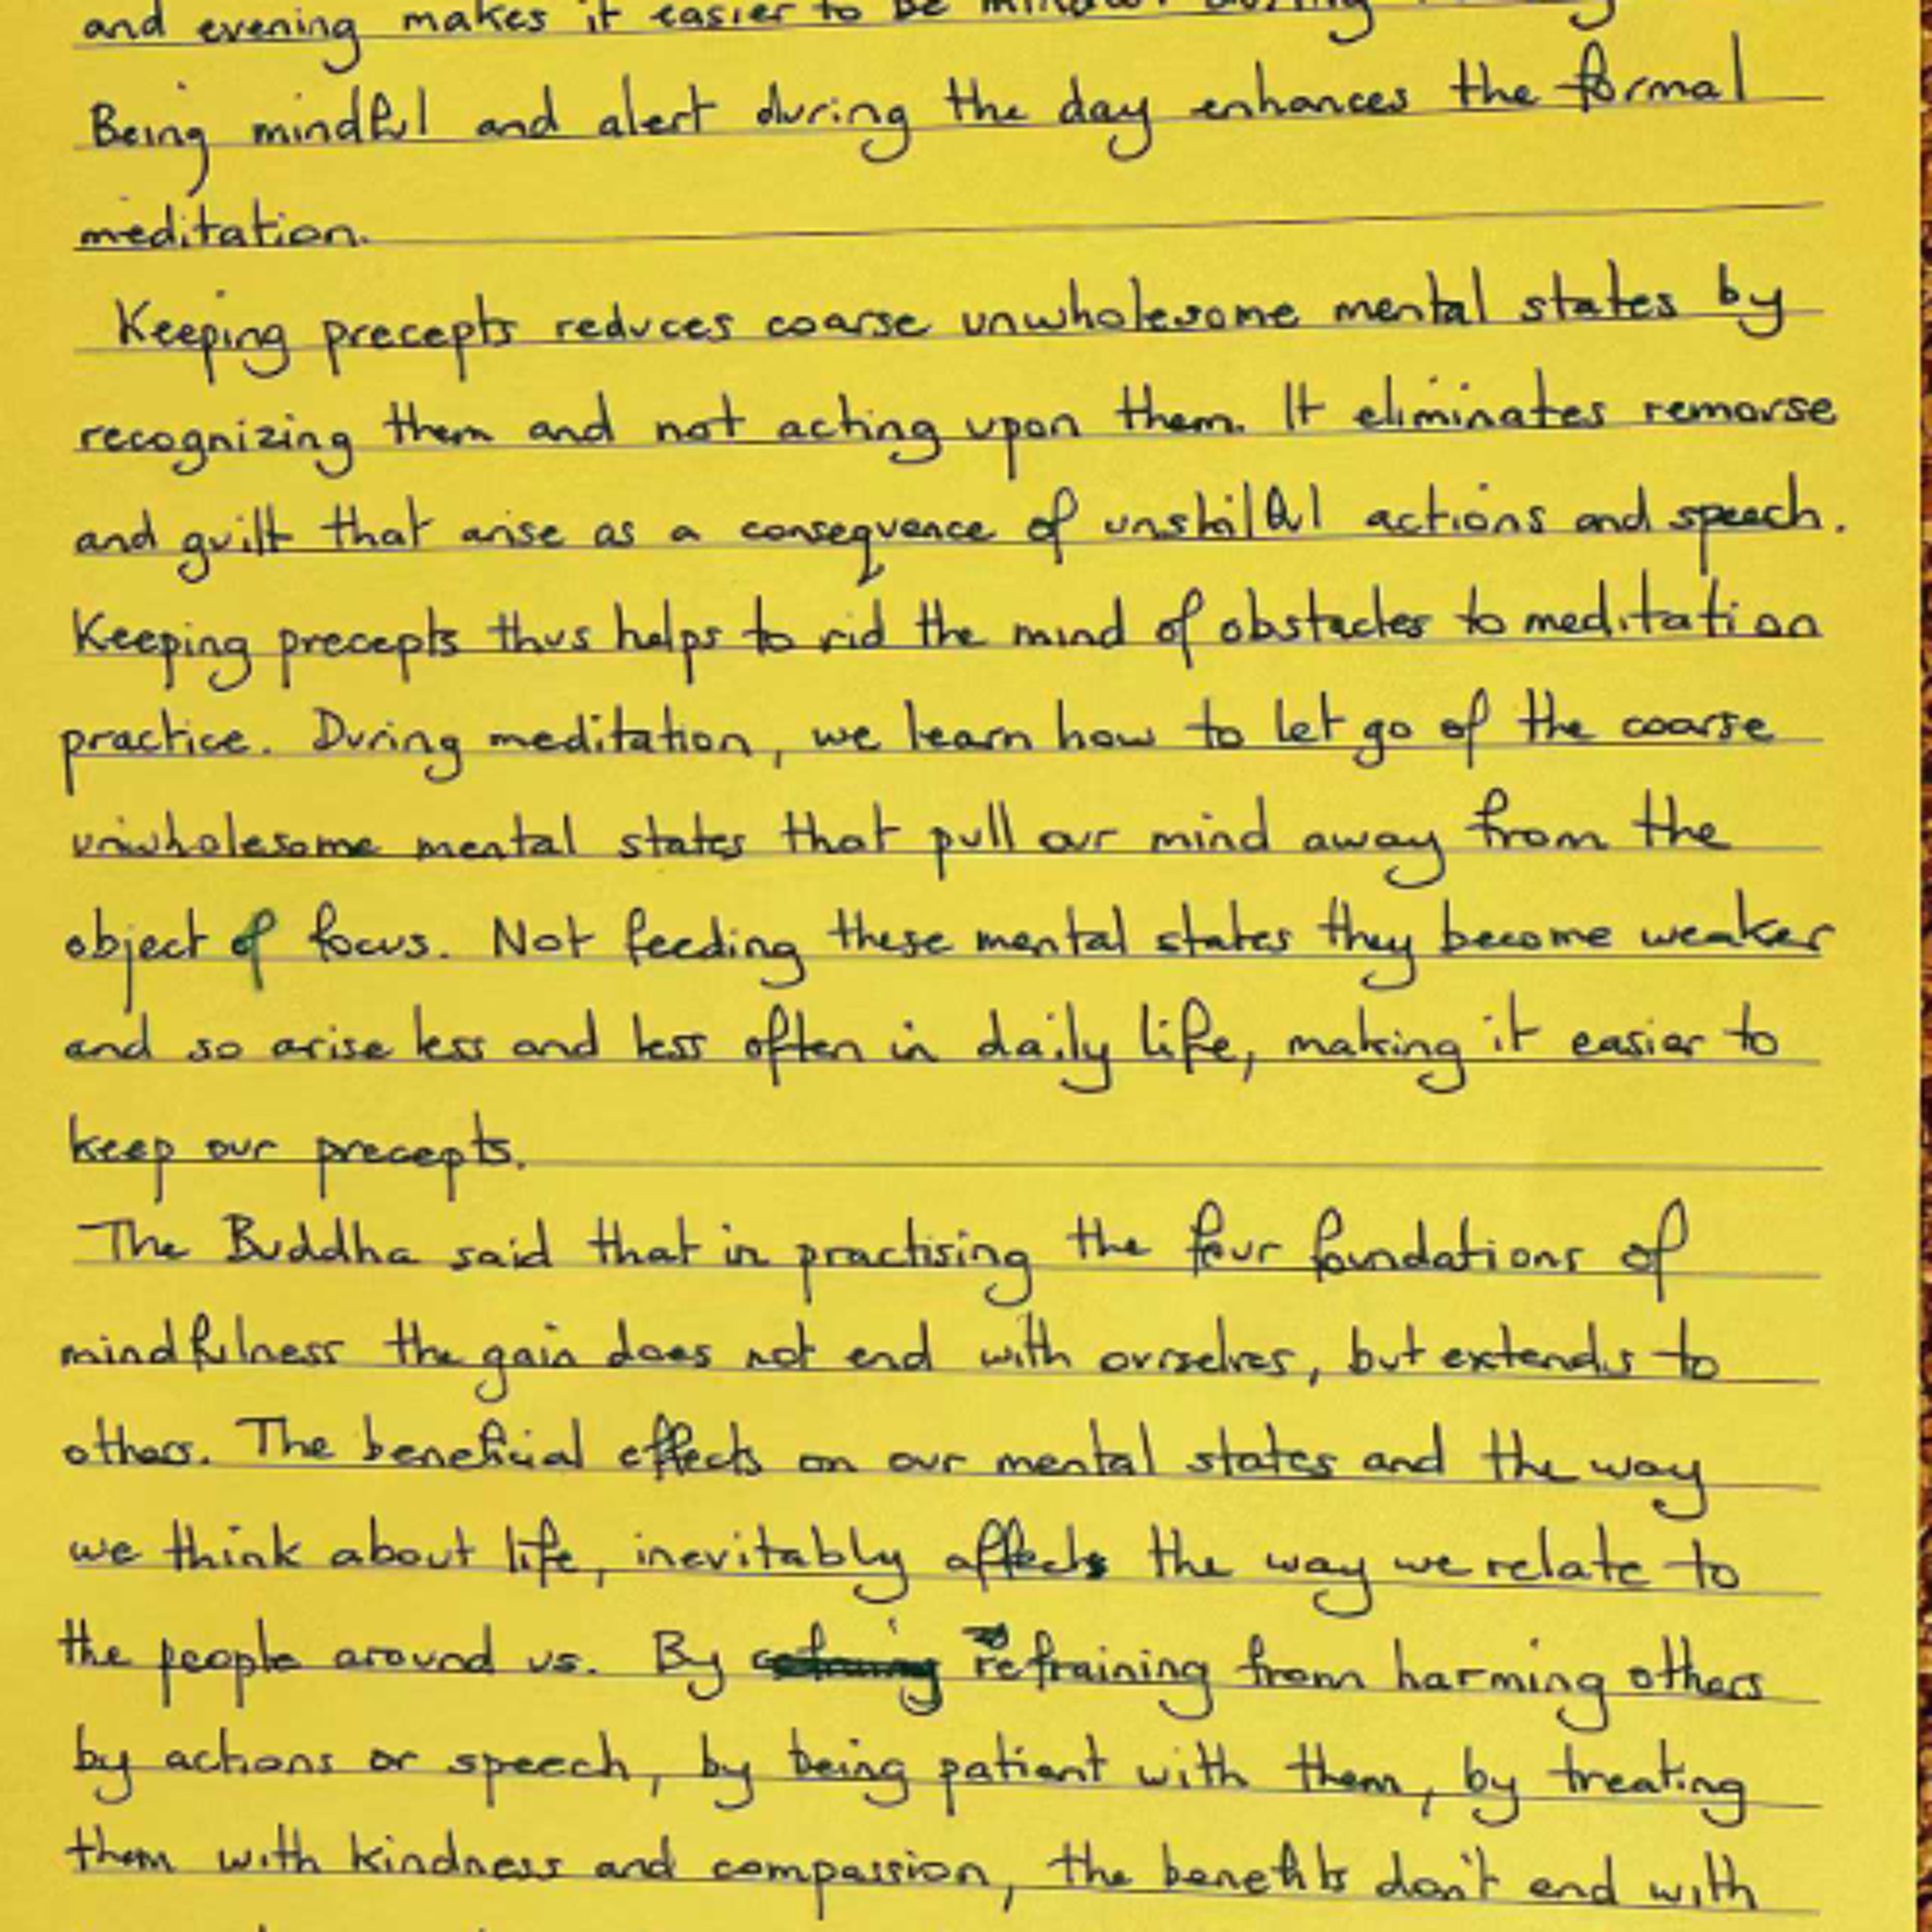 and evening makes it easier to be mindful during
Being mindful and alert during the day enhances the formal
meditation.
Keeping precepts reduces coarse unwholesome mental states by
recognizing them and not acting upon them. It eliminates remorse
and guilt that arise as a consequence of unskilful actions and speech.
Keeping precepts thus helps to rid the mind of obstacles to meditation
practice. During meditation, we learn how to let go of the coarse
unwholesome mental states that pull our mind away from the
object of focus. Not feeding these mental states they become weaker
and so arise less and less often in daily life, making it easier to
keep our precepts.
The Buddha said that in practising the four foundations of
mindfulness the gain does not end with ourselves, but extends to
others. The beneficial effects on our mental states and the way
we think about life, inevitably affects the way we relate to
the people around us. By refraining from harming others
by actions or speech, by being patient with them, by treating
them with kindness and compassion, the benefits don't end with